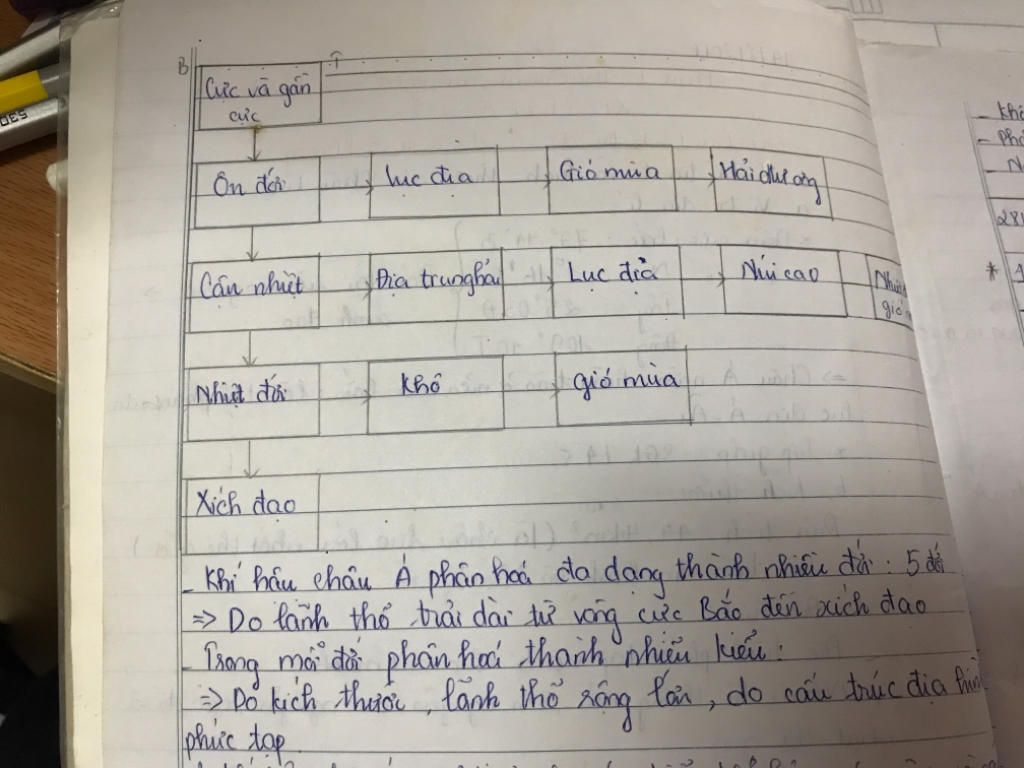 B T
Cực và gần
cực
Ôn đới Lục địa Gió mùa Hải dương
Cận nhiệt Địa trung hải Lục địa Núi cao Nhiệt
gió
Nhiệt đới Khô gió mùa
Xích đạo
- Khí hậu châu Á phân hoá đa dạng thành nhiều đới: 5 đới
=> Do lãnh thổ trải dài từ vòng cực Bắc đến xích đạo
- Trong mỗi đới phân hoá thành nhiều kiểu:
=> Do kích thước, lãnh thổ rộng lớn, do cấu trúc địa hình
phức tạp
- Khô
- Phâ
N
281
* 1